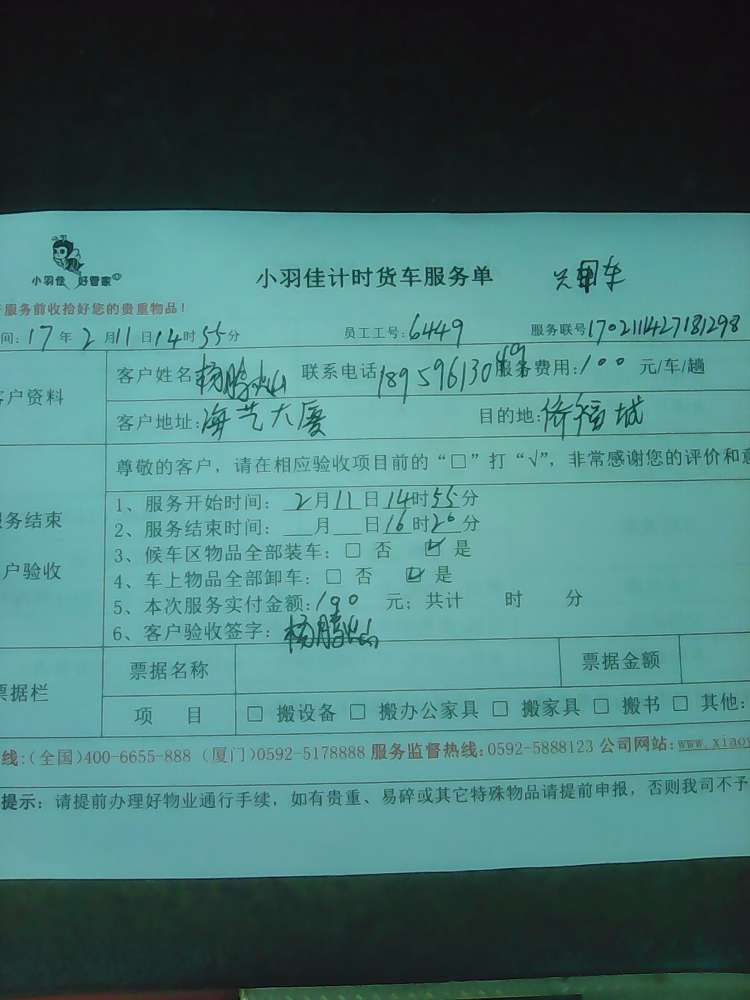 小羽佳 好管家
小羽佳计时货车服务单 只用车
服务前收拾好您的贵重物品！
间：17年2月11日14时55分 员工工号：6449 服务联号170211427181298
客户资料
客户姓名 杨腾 联系电话18959613049 服务费用：100 元/车/趟
客户地址：海艺大厦 目的地：侨福城
服务结束
客户验收
尊敬的客户，请在相应验收项目前的“□”打“√”，非常感谢您的评价和意
1、服务开始时间：2月11日14时55分
2、服务结束时间：__月__日16时20分
3、候车区物品全部装车：□ 否 ☑ 是
4、车上物品全部卸车：□ 否 ☑ 是
5、本次服务实付金额：190 元；共计 时 分
6、客户验收签字：杨腾
票据栏
票据名称 票据金额
项 目 □ 搬设备 □ 搬办公家具 □ 搬家具 □ 搬书 □ 其他：
线：(全国)400-6655-888 (厦门)0592-5178888 服务监督热线：0592-5888123 公司网站：www.xiaoy
提示：请提前办理好物业通行手续，如有贵重、易碎或其它特殊物品请提前申报，否则我司不予